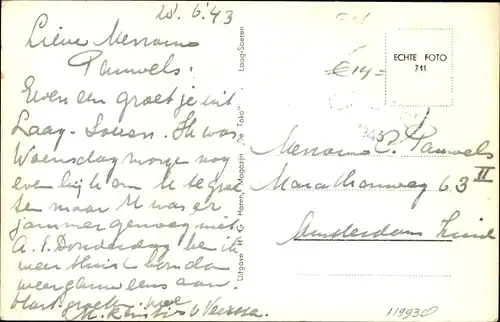 28.6.43
Lieve Mevrouw
Pauwels.
Even een groetje uit
Laag-Soeren. Ik was
Woensdag morge nog
even bij U om U te groe
ten maar U was er
jammer genoeg niet
A.S. Donderdag ben ik
weer thuis kom dan
weer gauw eens aan.
Hart. groeten
M.
Uitgave H. G. Harens Magazijn „De Toko" Laag-Soeren
ECHTE FOTO
711
€14=
1943
Mevrouw C. Pauwels
Marathonweg 63 II
Amsterdam Zuid
119930